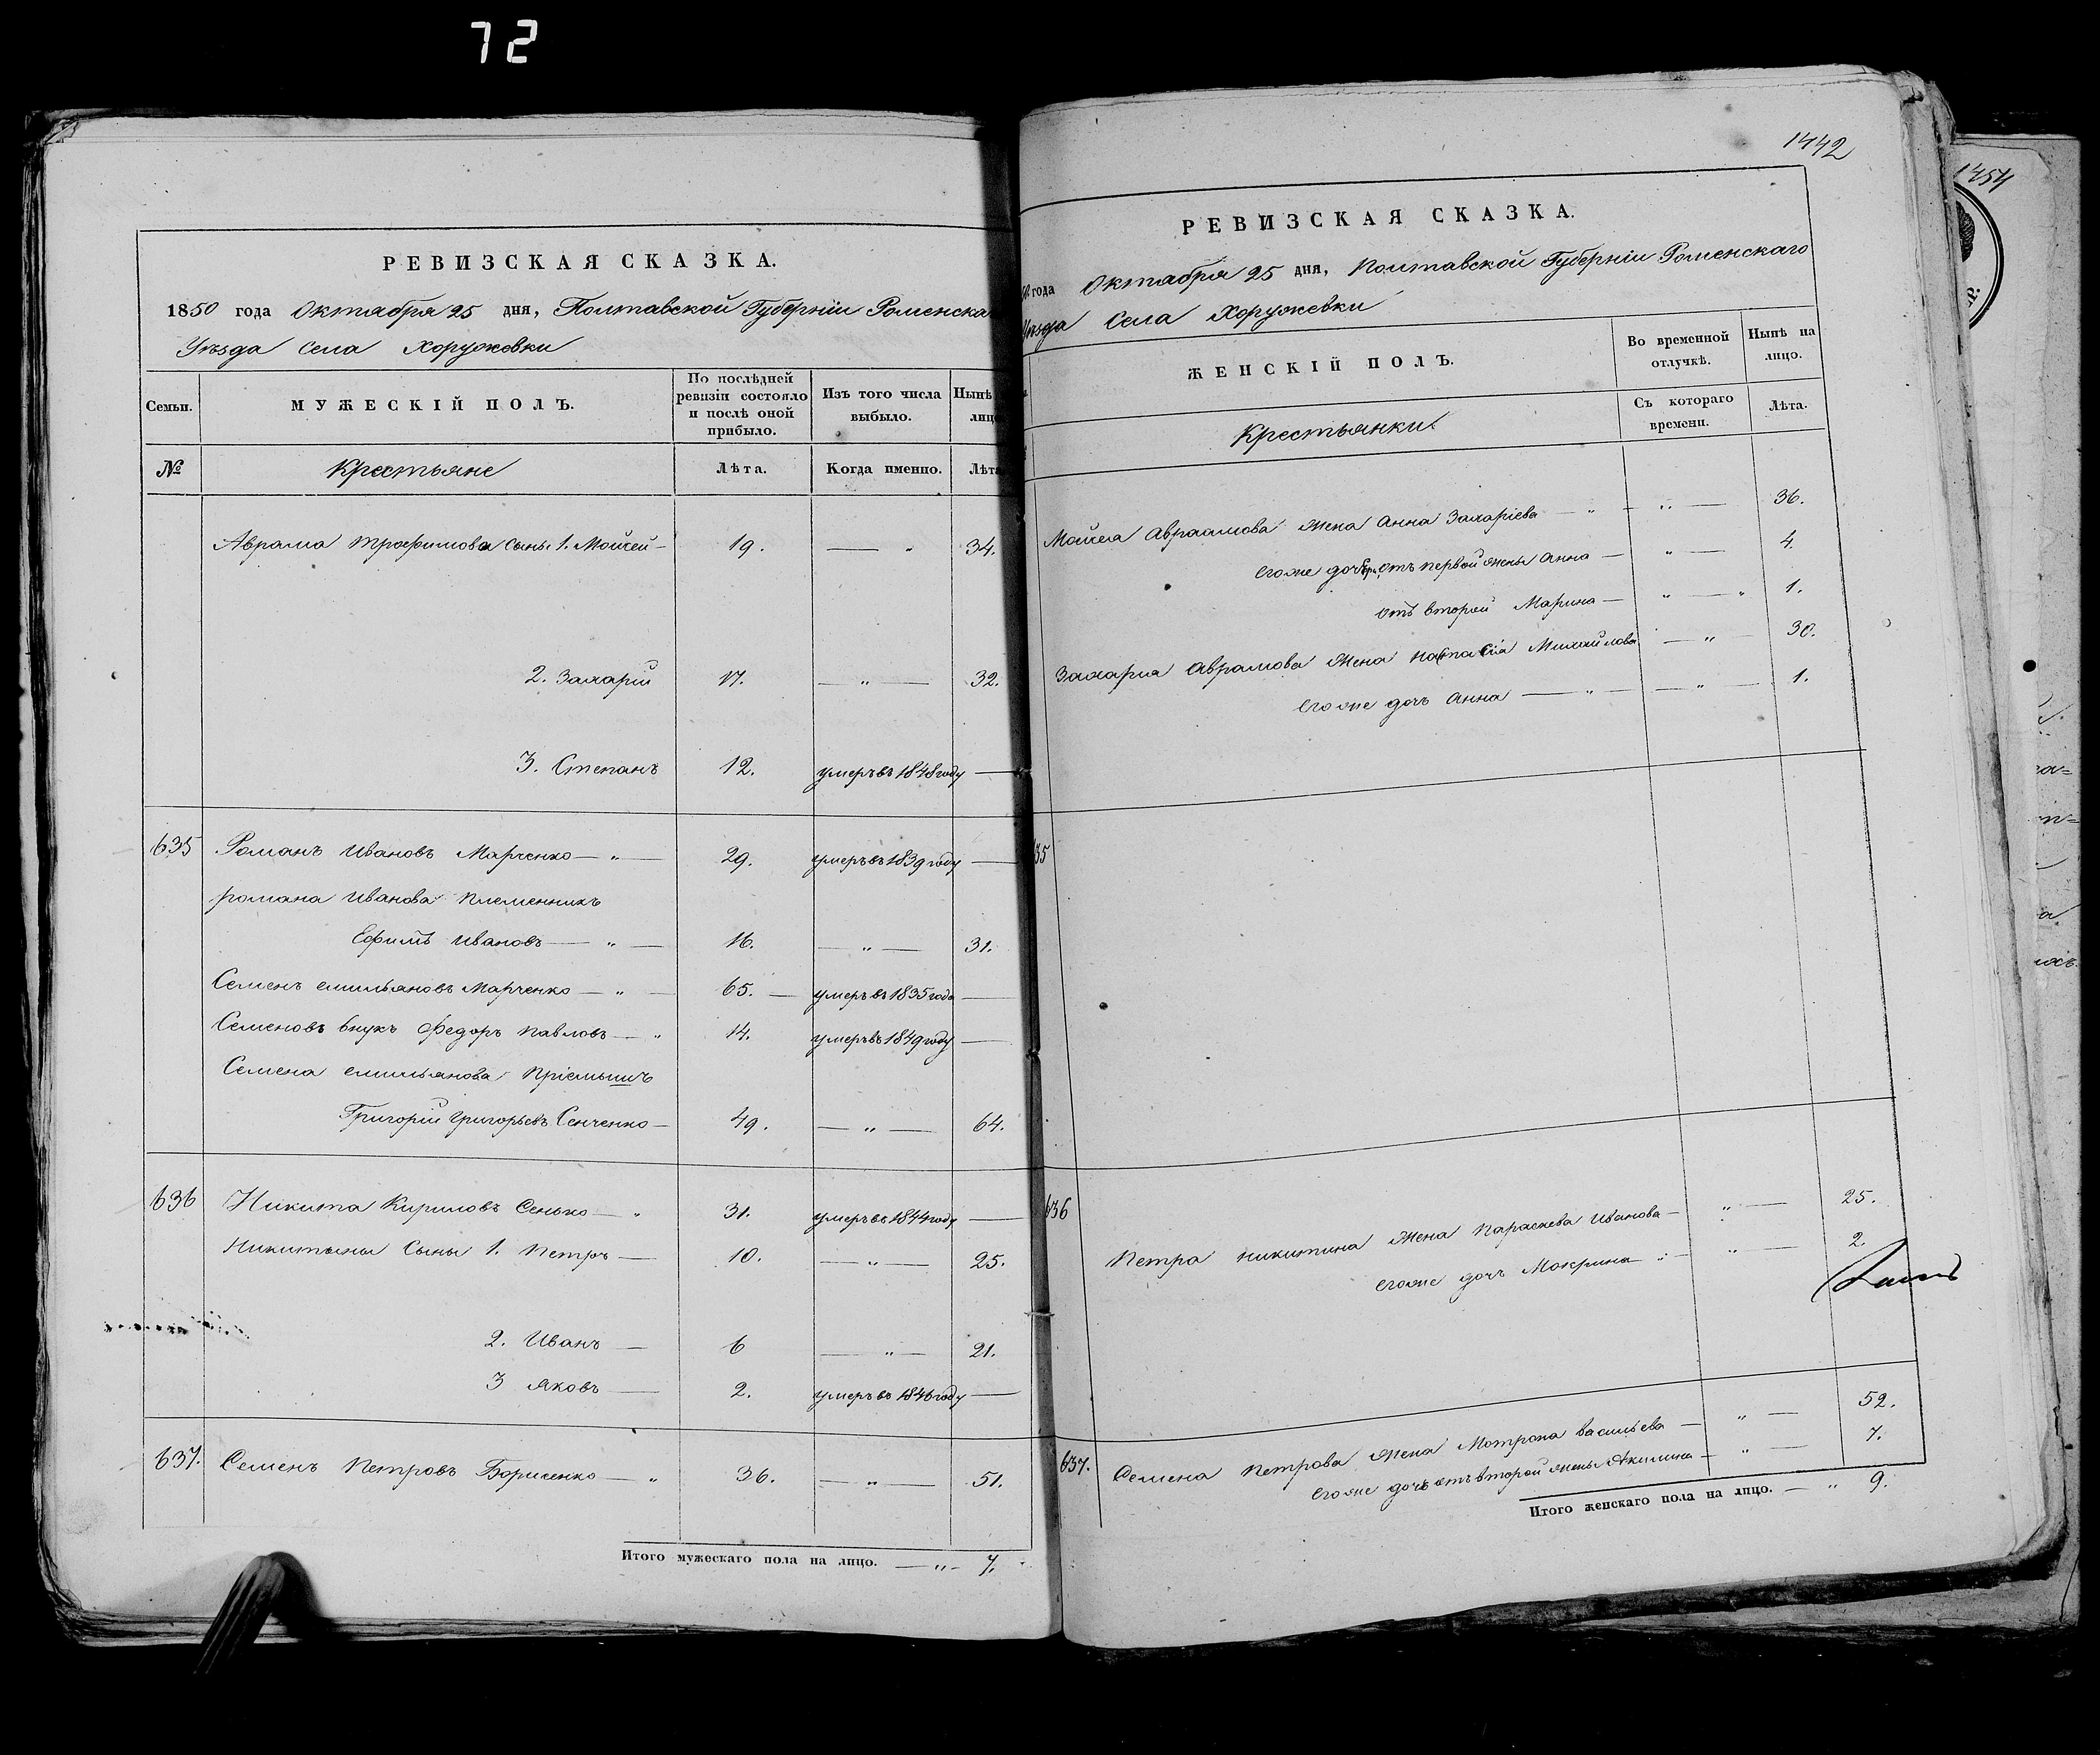 72
РЕВИЗСКАЯ СКАЗКА.
1850 года Октября 25 дня, Полтавской Губерніи Роменска
Уѣзда Села Хоружевки
Семьи.
МУЖЕСКІЙ ПОЛЪ.
По послѣдней ревизіи состояло и послѣ оной прибыло.
Изъ того числа выбыло.
Нынѣ
лиц
№
Крестьяне
Лѣта.
Когда именно.
Лѣта
Аврама Трофимова Сынъ 1. Мойсей — 19. — „ 34.
2. Захарій 17. — „ — 32.
3. Степанъ 12. умеръ въ 1848 году —
635 Романъ Ивановъ Марченко — „ — 29. умеръ въ 1839 году —
романа Иванова Племенникъ
Ефимъ Ивановъ — „ — 16. — „ — 31.
Семенъ емильяновъ Марченко — „ — 65. — умеръ въ 1835 года —
Семеновъ внукъ Федоръ Павловъ — „ 14. умеръ въ 1849 году —
Семена емильянова Пріемышъ
Григорій Григорьевъ Сенченко — 49. — „ — 64.
636 Никита Кириловъ Сенько — „ 31. умеръ въ 1844 году —
Никитины Сыны 1. Петръ — 10. — „ — 25.
2. Иванъ — 6 — „ — 21.
3 Яковъ — 2. умеръ въ 1846 году —
637. Семенъ Петровъ Борисенко — „ 36. — „ — 51.
Итого мужескаго пола на лицо. — „ — 7.
1442
РЕВИЗСКАЯ СКАЗКА.
года Октября 25 дня, Полтавской Губерніи Роменскаго
Уѣзда Села Хоружевки
ЖЕНСКІЙ ПОЛЪ.
Во временной отлучкѣ.
Нынѣ на лицо.
Крестьянки.
Съ котораго времени.
Лѣта.
Мойсея Авраамова жена Анна Захаріева — „ — „ — 36.
его же дочери отъ первой жены Анна — „ — 4.
отъ второй Марина — „ — „ 1.
Захарія Аврамова Жена Настасія Михайлова — „ — 30.
его же дочь Анна — „ — — „ — 1.
635
636
Петра Никитина Жена Параскева Иванова — „ — 25.
его же дочь Мокрина „ — „ — 2.
637. Семена Петрова Жена Мотрона васильева — „ — 52.
его же дочь отъ второй жены Акилина — „ — 7.
Итого женскаго пола на лицо. — „ 9.
1454